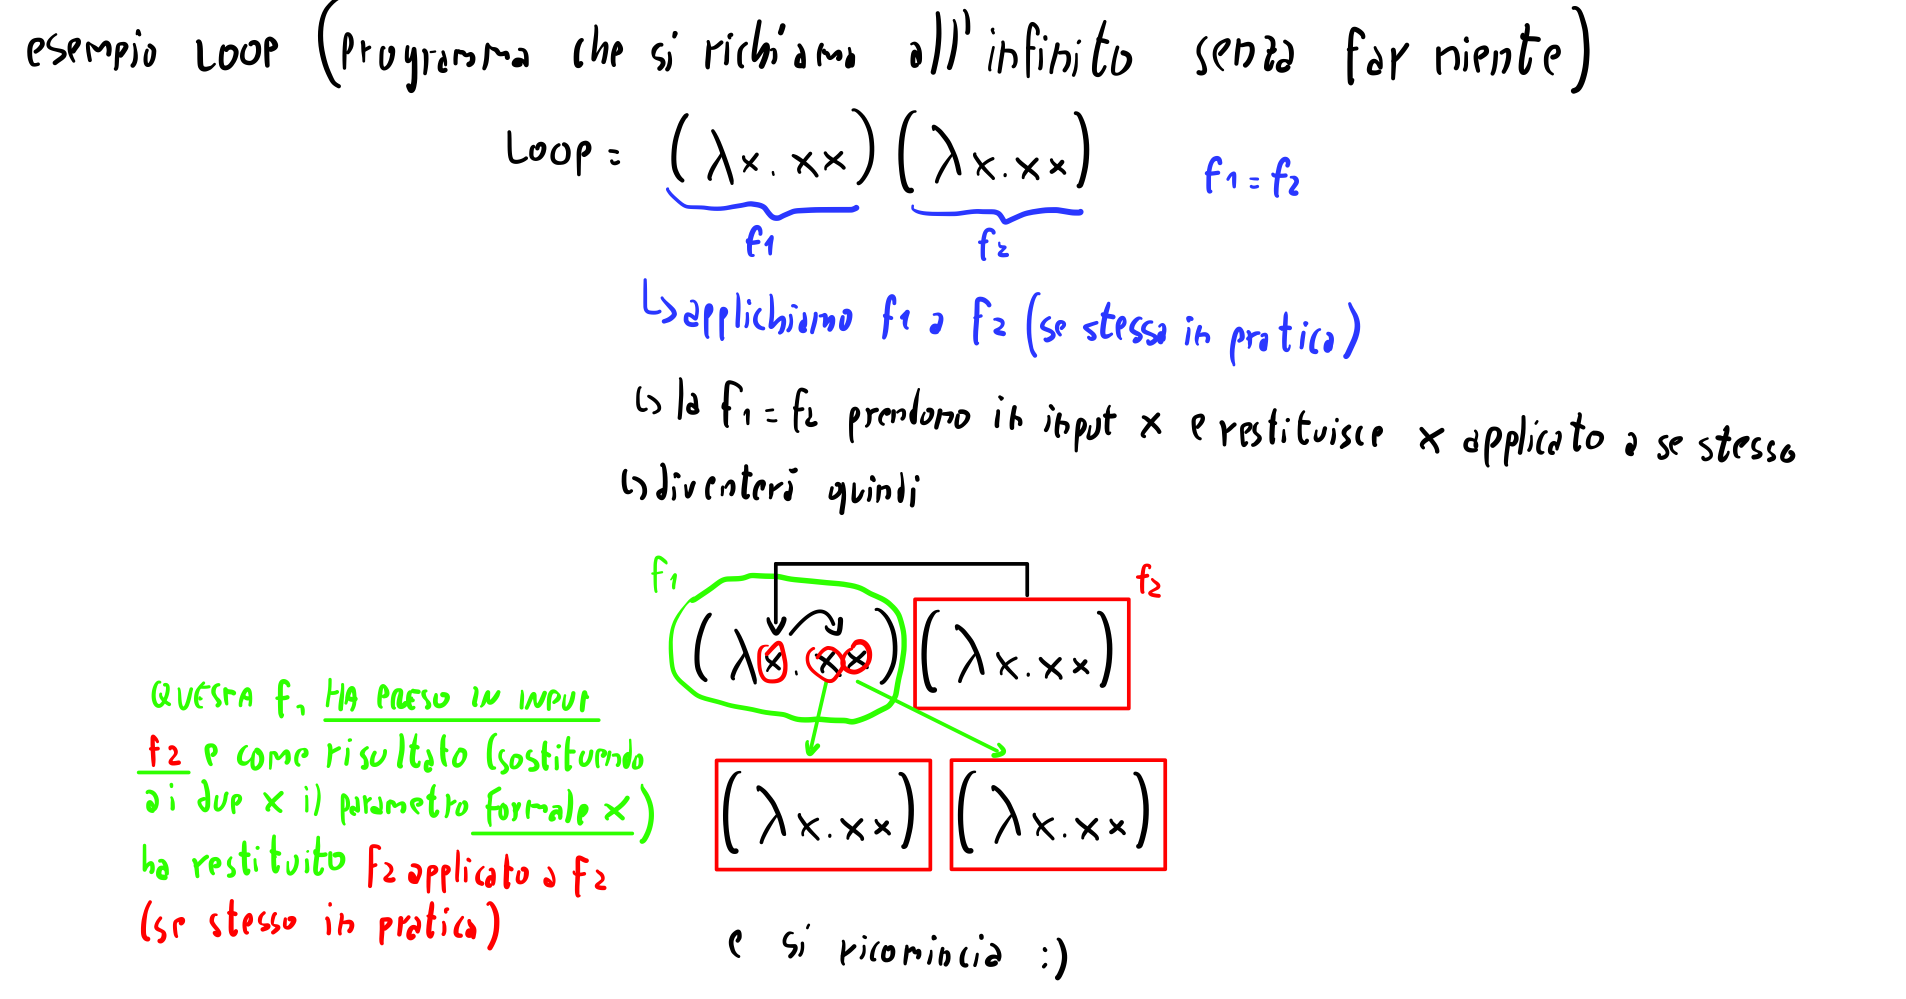 esempio LOOP (programma che si richiama all'infinito senza far niente)
Loop = (λx.xx)(λx.xx) f1=f2
f1 f2
↳applichiamo f1 a f2 (se stessa in pratica)
↳ la f1=f2 prendono in input x e restituisce x applicato a se stesso
↳diventerà quindi
f1 f2
(λx.xx)(λx.xx)
QUESTA f1 HA PRESO IN INPUT
f2 e come risultato (sostituendo
ai due x il parametro formale x)
ha restituito f2 applicato a f2
(se stesso in pratica)
(λx.xx) (λx.xx)
e si ricomincia :)